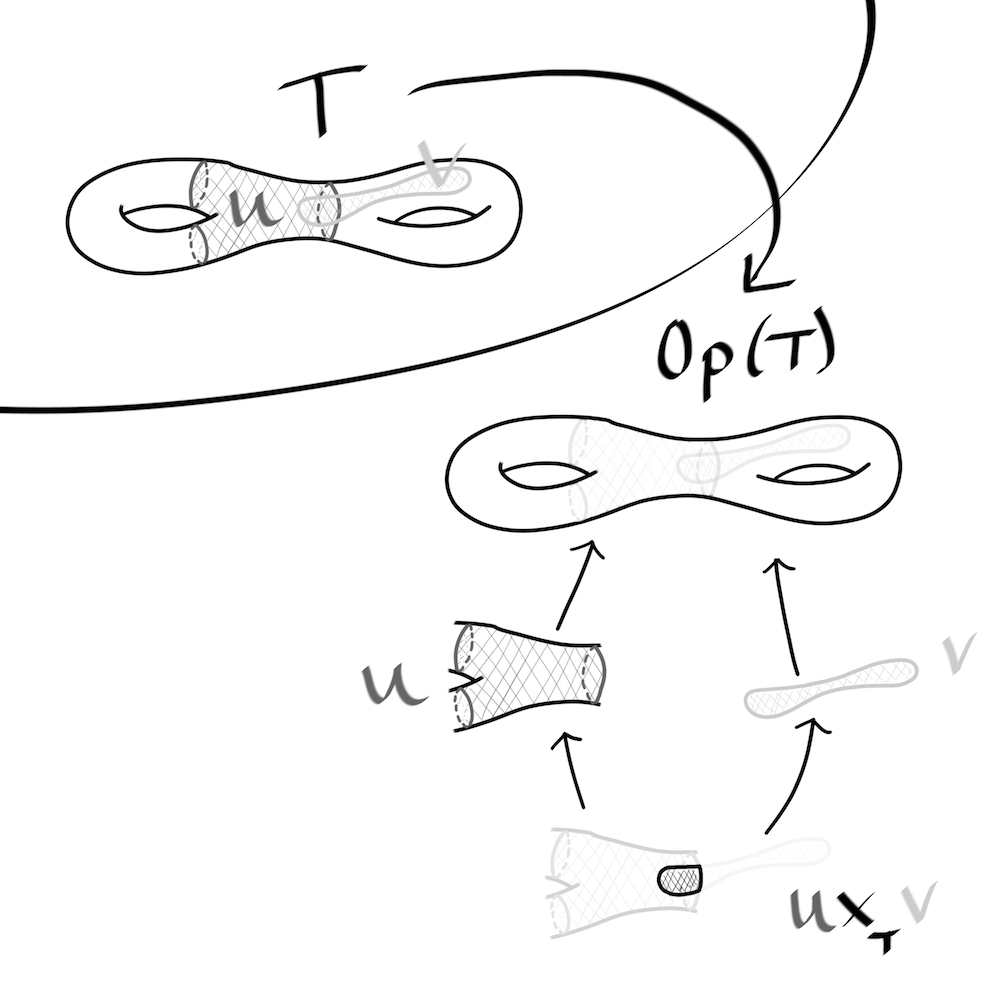 T
V
U
Op(T)
U
V
U×_T V